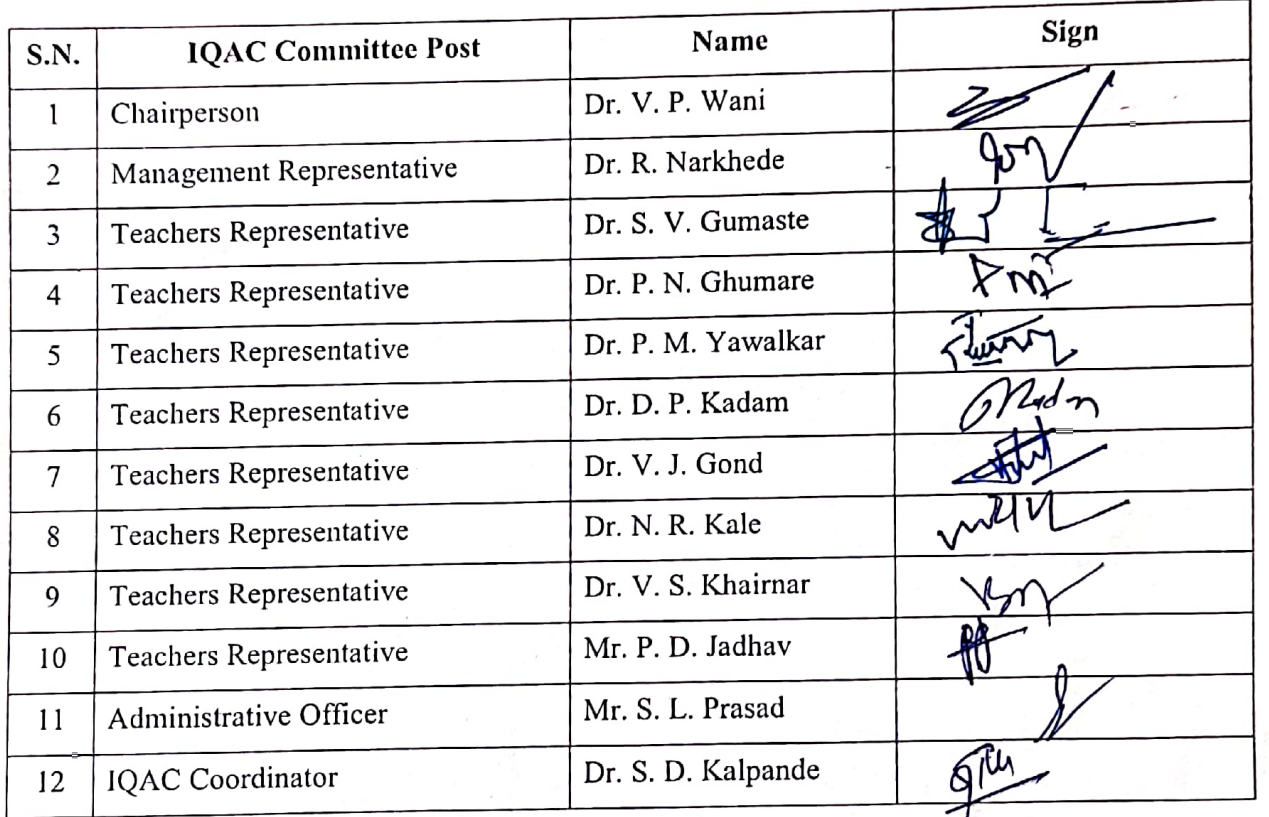 S.N. IQAC Committee Post Name Sign
1 Chairperson Dr. V. P. Wani
2 Management Representative Dr. R. Narkhede
3 Teachers Representative Dr. S. V. Gumaste
4 Teachers Representative Dr. P. N. Ghumare
5 Teachers Representative Dr. P. M. Yawalkar
6 Teachers Representative Dr. D. P. Kadam
7 Teachers Representative Dr. V. J. Gond
8 Teachers Representative Dr. N. R. Kale
9 Teachers Representative Dr. V. S. Khairnar
10 Teachers Representative Mr. P. D. Jadhav
11 Administrative Officer Mr. S. L. Prasad
12 IQAC Coordinator Dr. S. D. Kalpande